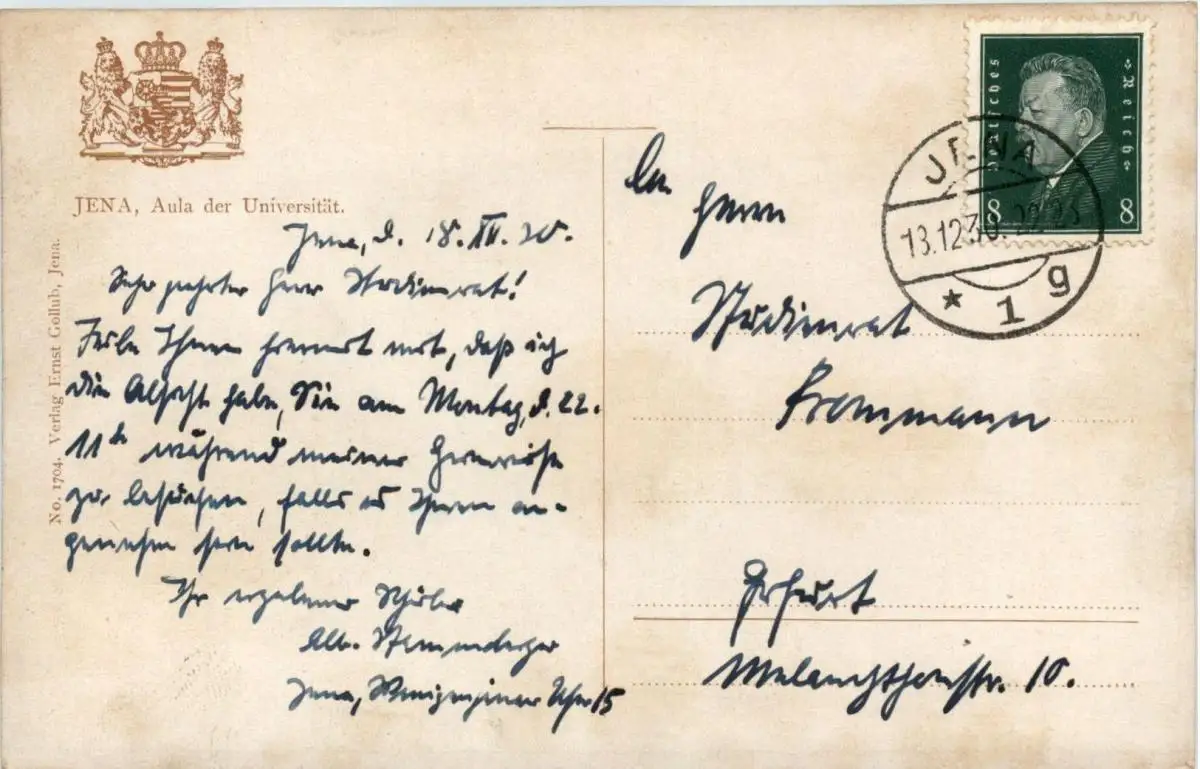 JENA, Aula der Universität.
No. 1704. Verlag Ernst Gollub, Jena.
Jena, d. 18. XII. 30.
Sehr geehrter Herr Studienrat!
Teile Ihnen hiermit mit, daß ich
die Absicht habe, Sie am Montag, d. 22.
11 während meiner
zu besuchen, falls es Ihnen an-
genehm sein sollte.
Ihr ergebener Schüler
Jena, Ufer 15
An
Herrn
Studienrat
Frommann
Erfurt
Melanchthonstr. 10.
Deutsches Reich
8 8
JENA
13.12.30. 22-23
* 1 g